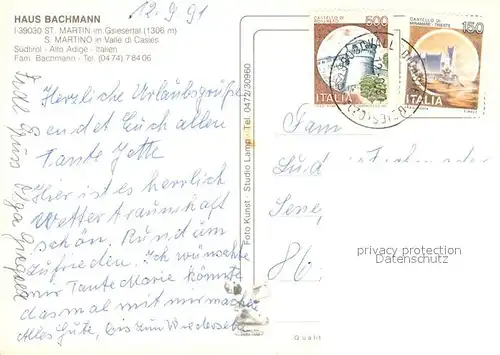 HAUS BACHMANN
I-39030 ST. MARTIN im Gsiesertal (1306 m)
S. MARTINO in Valle di Casies
Südtirol - Alto Adige - Italien
Fam. Bachmann - Tel. (0474) 78406
12.9.91
Herzliche Urlaubsgrüße
sendet Euch allen
Tante Jette
Hier ist es herrlich
Wetter traumhaft
schön. Rund um
zufrieden. Ich wünschte
nur Tante Marie könnte
das mal mit mir machen
Alles Gute, bis zum Wiedersehen
Gruss Olga
Foto Kunst - Studio Lamp - Tel. 0472/30960
500
ITALIA
CASTELLO DI
MIRAMARE - TRIESTE
150
ITALIA
Fam
86
privacy protection
Datenschutz
Qualit